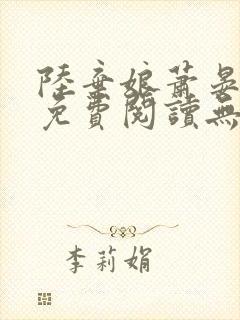 陸棄娘蕭晏
免費閱讀無
李莉娟